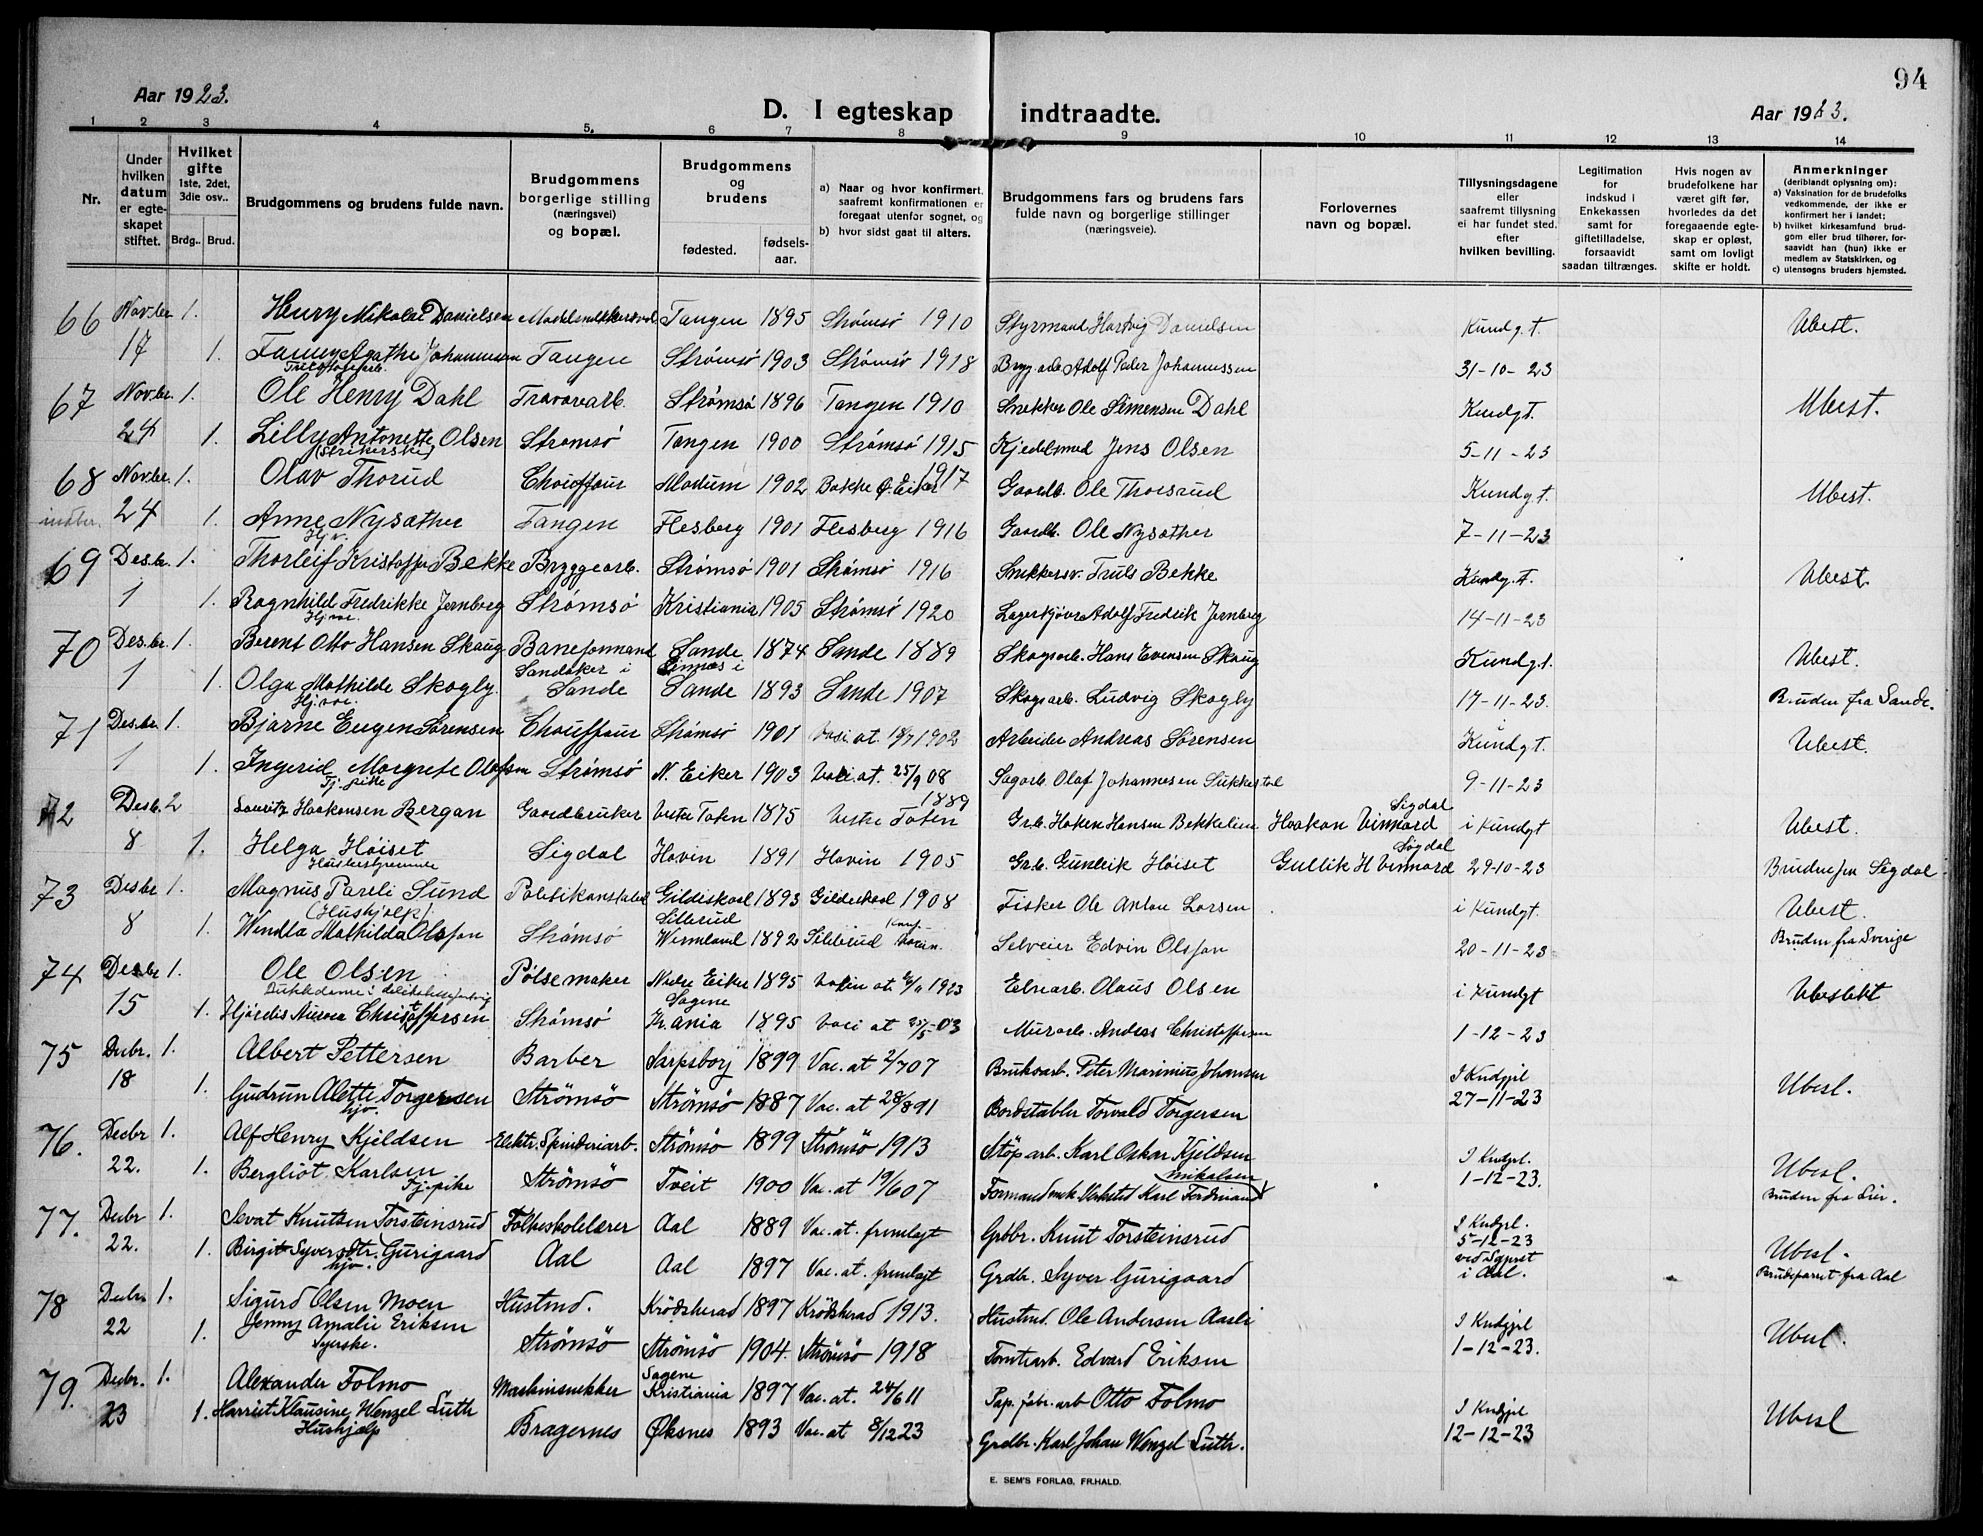 94
Aar 1923.
D. I egteskap indtraadte.
Aar 1923.
1 2 3 4 5. 6 7 8 9 10 11 12 13 14
Nr.
Under hvilken datum er egteskapet stiftet.
Hvilket gifte 1ste, 2det, 3die osv..
Brdg.. Brud.
Brudgommens og brudens fulde navn.
Brudgommens borgerlige stilling (næringsvei) og bopæl.
Brudgommens og brudens
fødested.
fødsels-aar.
a) Naar og hvor konfirmert, saafremt konfirmationen er foregaat utenfor sognet, og
b) hvor sidst gaat til alters.
Brudgommens fars og brudens fars fulde navn og borgerlige stillinger (næringsveie).
Forlovernes navn og bopæl.
Tillysningsdagene eller saafremt tillysning ei har fundet sted. efter hvilken bevilling.
Legitimation for indskud i Enkekassen samt for giftetilladelse, forsaavidt saadan tiltrænges.
Hvis nogen av brudefolkene har været gift før, hvorledes da det foregaaende egteskap er opløst, samt om lovligt skifte er holdt.
Anmerkninger (deriblandt oplysning om):
a) Vaksination for de brudefolks vedkommende, der ikke er konfirmert her i landet;
b) hvilket kirkesamfund brudgom eller brud tilhører, forsaavidt han (hun) ikke er medlem av Statskirken, og
c) utensogns bruders hjemsted.
66 Nov.ber 1. Henry Nikolai Danielsen Tangen 1895 Strømsø 1910 Styrmand Hartvig Danielsen Kundg.t. Ubest.
17 1. Fanny Agathe Johannessen Tangen Strømsø 1903 Strømsø 1918 Brygarb Adolf Peder Johannessen 31-10-23
67 Nov.ber. 1. Ole Henry Dahl Travarearb. Strømsø 1896 Tangen 1910 Snekker Ole Simensen Dahl Kundgt. Ubest.
24 1. Lilly Antonette Olsen Strømsø Tangen 1900 Strømsø 1915 Kjedelsmed Jens Olsen 5-11-23
(Strikerske)
68 Nov.ber. 1. Olav Thorud Chauffaur Modum 1902 Bakke Ø. Eiker 1917 Gaardb. Ole Thorsrud Kundg.t. Ubest.
24 1. Anne Nysæther Tangen Flesberg 1901 Flesberg 1916 Gaardb. Ole Nysæther 7-11-23
Hjv.
69 Des.br. 1. Thorleif Kristoffer Bekke Bryggearb. Strømsø 1901 Strømsø 1916 Snekkersv. Truls Bekke Kundg.t. Ubest.
1 1. Ragnhild Fredrikke Jernberg Strømsø Kristiania 1905 Strømsø 1920 Lagerkjører Adolf Fredrik Jernberg 14-11-23
Hj.væ.
70 Des.br. 1. Berent Otto Hansen Skaug Baneformand Sande 1874 Sande 1889 Skogsarb. Hans Evensen Skaug Kundgt. Ubest.
1 1. Olga Mathilde Skogly. Sandaker i Sande Sande 1893 Sande 1907 Skogsarb. Ludvig Skogly 17-11-23. Bruden fra Sande.
Hj.væ.
71 Des.br 1. Bjarne Eugen Sørensen Chauffaur Strømsø 1901 1902 Arbeider Andreas Sørensen Kundgt. Ubest.
1 1. Ingerid Margrete Olafsen Strømsø N. Eiker 1903 25/9 08 Sagarb. Olaf Johannesen 9-11-23
Tj. pike
72 Desb. 2 Lauritz Haakonsen Bergan Gaardbruker Vestre Toten 1875 Vestre Toten 1889 Grb. Haken Hansen Haakon Vinnord Sigdal i Kundgt Ubest.
8 1. Helga Høiset Sigdal Hovin 1891 Hovin 1905 Grb. Gunleik Høiset Gullik H Vinnord Sigdal 29-10-23 Bruden fra Sigdal
Husbestyrerinne
73 Desbr 1. Magnus Pareli Sund Politikonstabel Gildeskaal 1893 Gildeskaal 1908 Fisker Ole Anton Larsen i Kundgt. Ubest.
(Hushjælp)
8 1. Wendla Mathilda Olsson Strømsø Silbrud Wermland 1892 Edvin Olsson 20-11-23 Bruden fra Sverige
74 Desbr 1. Ole Olsen Pølsemaker Nedre Eiker 1895 1923 Olaus Olsen i Kundgt Ubeslekt
15 1. Hjørdis Aurora Christoffersen Strømsø Sagene Kr.ania 1895 25/5-03 Murarb. Andreas Christoffersen 1-12-23
75 Decbr. 1. Albert Pettersen Barber Sarpsborg 1899 Vac. at 2/7 07 Bruksarb. Peter Marinius Johansen I Kndgjel Ubesl.
18 1. Gudrun Alette Torgersen Strömsö Strömsö 1887 Vac. at 28/8 91 Bordstabler Torvald Torgersen 27-11-23
hjv.
76. Decbr 1. Alf Henry Kjeldsen Elektr. Spinderiarb. Strömsö 1899 Strömsö 1913 Støp.arb. Karl Oskar Kjeldsen I Kndgjel. Ubesl.
22. 1. Bergliot Karlsen Strömsö Tveit 1900 Vac. at 19/6 07 Karl Ferdinand Mikalsen 1-12-23. Bruden fra Lier.
Tj.-pike
77. Decbr 1. Sevat Knutsen Torsteinsrud Folkeskolelærer Aal 1889 Vac. at. fremlagt Grdbr. Knut Torsteinsrud I Kndgjel. 5-12-23 Ubesl.
22. 1. Birgit Syversdtr. Gurigaard Aal Aal 1897 Vac. at. fremlagt Grdbr. Syver Gurigaard i Aal. Brudeparret fra Aal
hjv.
78 Decbr. 1. Sigurd Olsen Moen Hustmd. Krödsherad 1897 Krödsherad 1913. Hustmd. Ole Andersen Aasli I Kndgjel Ubesl.
22 1. Jenny Amalie Eriksen Strömsö Strömsö 1904. Strömsö 1918 Tomtearb. Edvard Eriksen 1-12-23.
Syerske.
79. Decbr. 1. Alexander Folmo Maskinsnekker Sagene Kristiania 1897 Vac. at. 24/6 11 Pap. fabr. arb Otto Folmo I Kndgjel Ubesl
23 1. Harriet Klausine Wenzel Luth Bragernes Øksnes 1893 Vac. at 8/12 23 Grdbr. Karl Johan Wenzel Luth. 12-12-23
Hushjælp
E. SEM'S FORLAG, FR.HALD.